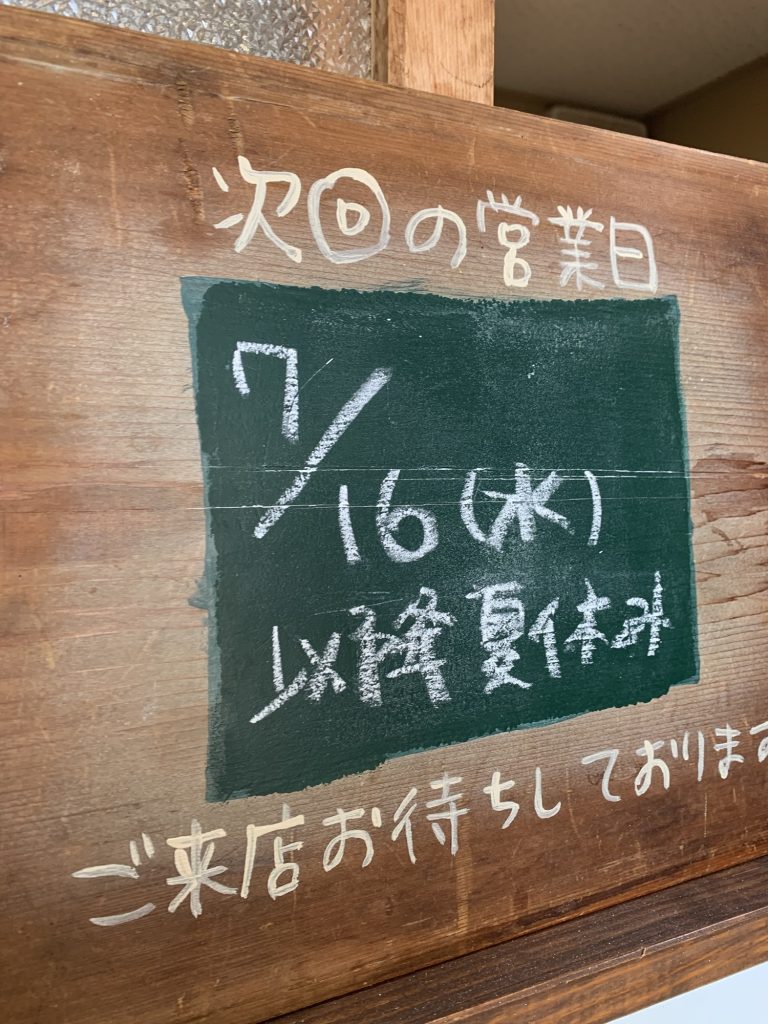 次回の営業日
7/16(水)
以降夏休み
ご来店お待ちしております